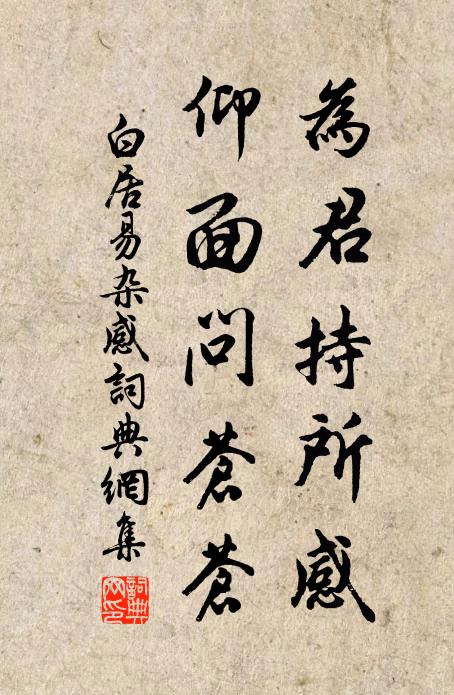 為君持所感
仰面問蒼蒼
白居易杂感詞典網集
詞典
网印